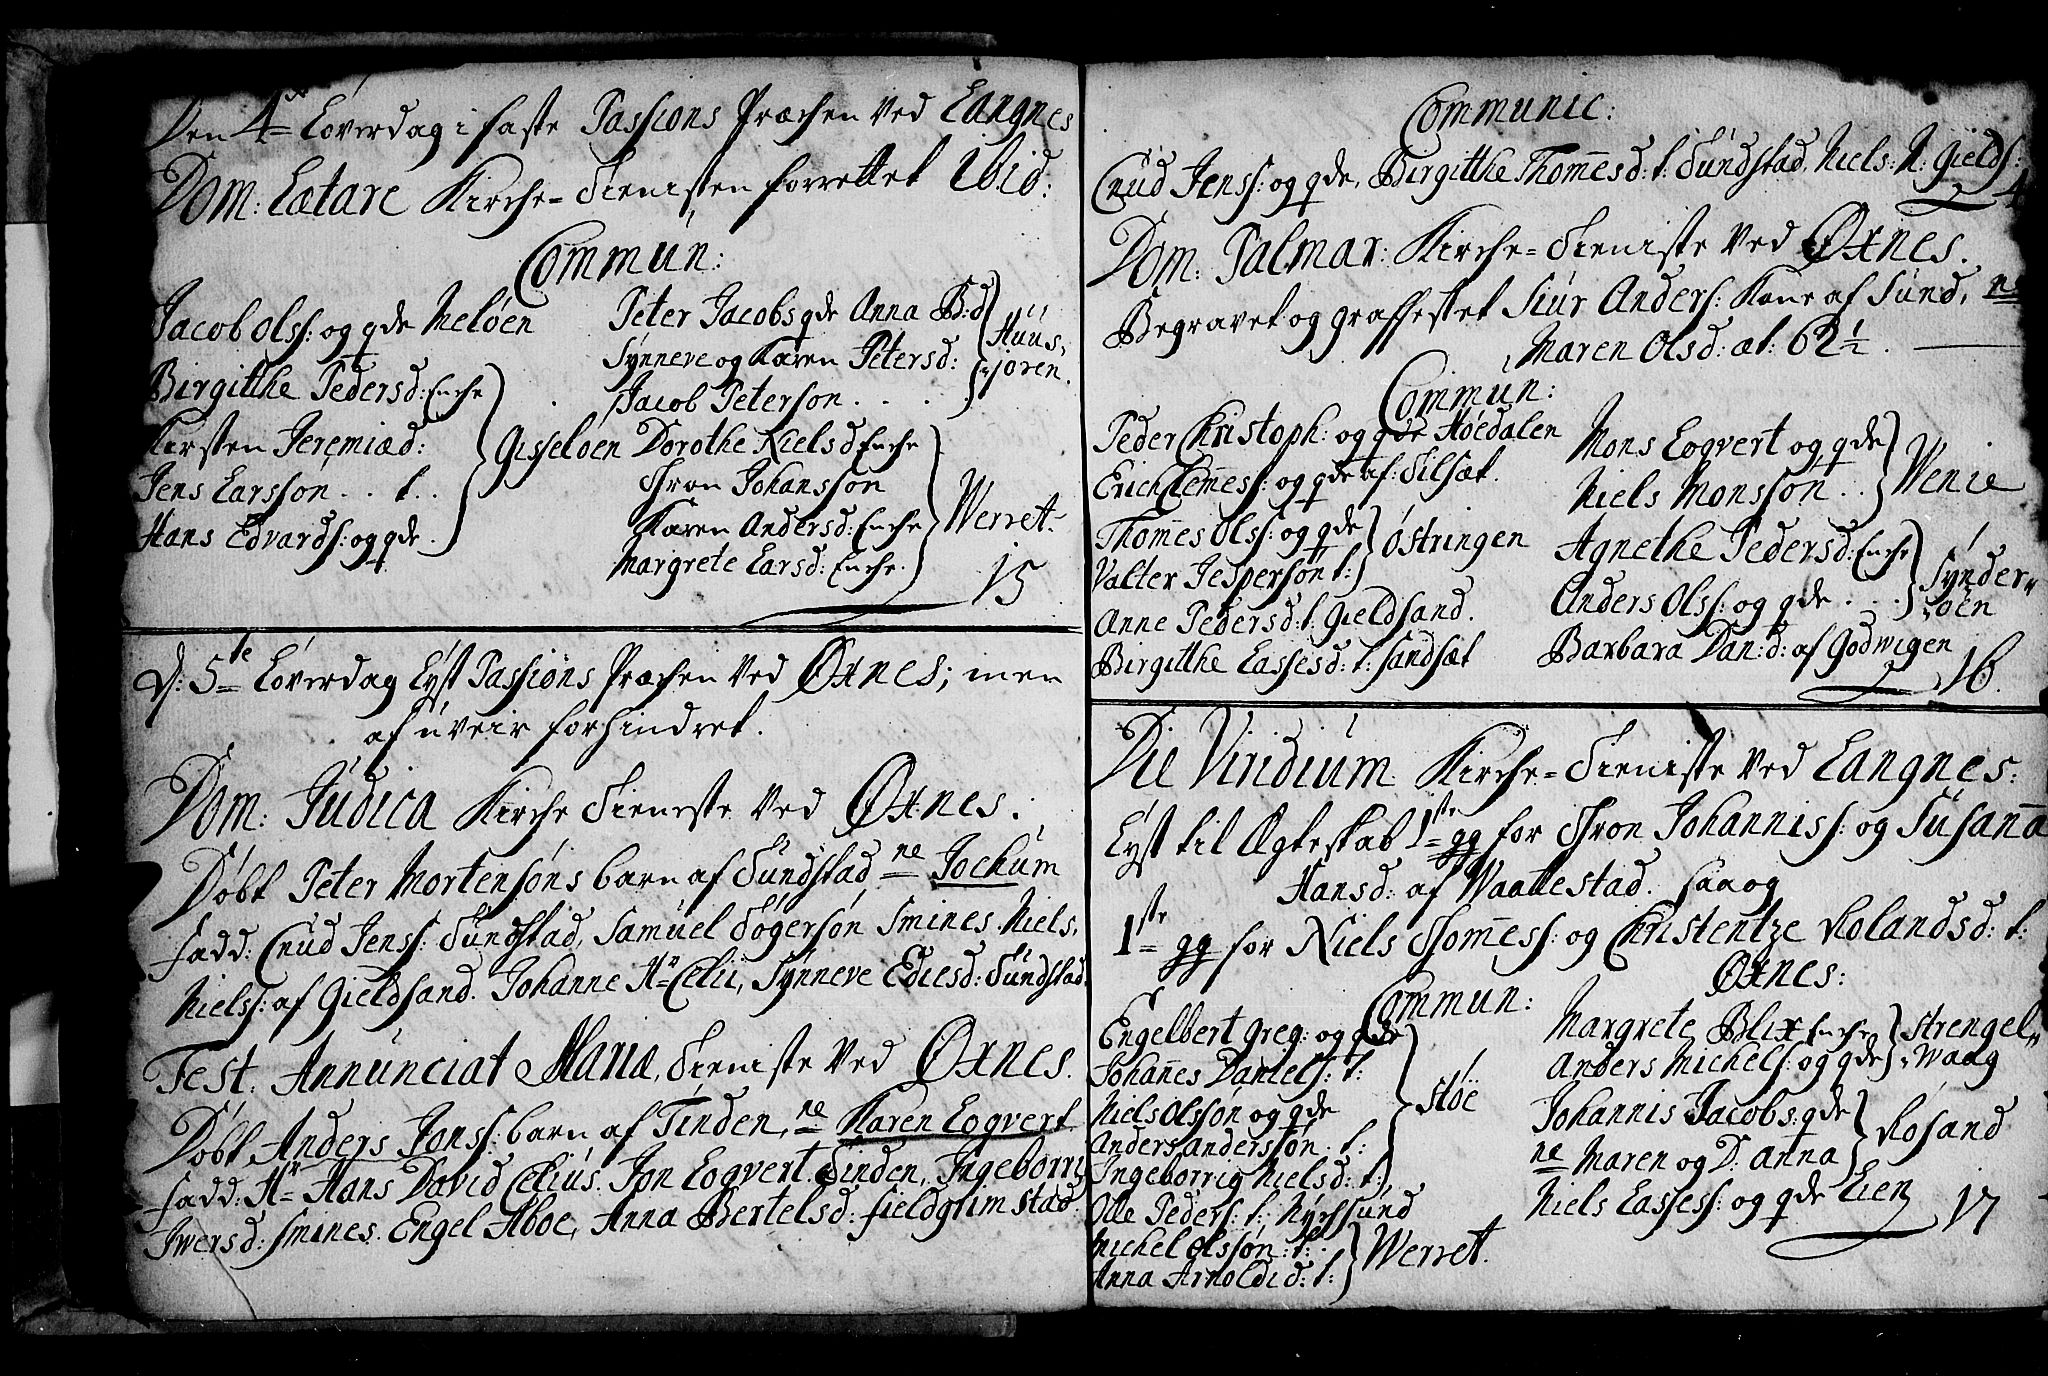 Den 4de Løverdag i faste Passions Præchen ved Langnes
Dom: Lætare Kirche=Tienisten forrettet Ibid:
Commun:
Jacob Olss: og qde Meløen
Birgitthe Pedersd: Enche
Kirsten Jeremiæd:
Jens Larsson . . t . .
Hans Edvards: og qde .
Gisseløen
Peter Jacobs qde Anna B:d
Synneve og Karen Petersd:
Jacob Peterson . . . .
Huus=
=joren.
Dorothe Nielsd Enche
Thron Johansson
Karen Andersd: Enche
Margrete Larsd: Enche.
Werret
15
d: 5te Løverdag Lyst Passions Præchen ved Øxnes; men
af uveir forhindret.
Dom: Judica Kirche Tieneste ved Øxnes.
Døbt Peter Mortensøns barn af Sundstad ne Jochum
fadd: Cnud Jenss: Sundstad, Samuel Søgersøn Smines. Niels
Nielss: af Gieldsand. Johanne Hr Celii, Synneve Ediesd: Sundstad
Fest. Annunciat Mariæ. Tieniste ved Øxnes.
Døbt Anders Jonss: barn af Tinden, ne Karen Logvert
fadd: Hr Hans David Celius. Jon Logvert Tinden, Ingeborrig
Iwersd: Smines. Engel Aboe, Anna Bertelsd: fieldgrimstad
Communic:
Cnud Jenss: og qde, Birgitthe Thom̄esd: t: Sundstad, Niels: N: Gields:
4
Dom: Palmar: Kirche=Tieniste ved Øxnes.
Begravet og graffestet Siur Anders: Kone af Sund, ne
Maren Olsd: æt: 62½.
Commun:
Peder Christoph: og qde Høedalen
Erich Clem̄ess: og qde af: Tilsæt.
Thom̄es Olss: og qde
Valter Jesperson t:
Østringen
Anne Pedersd: t: Gieldsand.
Birgitthe Lassesd: t: Sandsæt
Mons Logvert og qde
Niels Monsson . .
Wenie
Agnethe Pedersd: Enche
Anders Olss: og qde . . .
Synder=
=øen
Barbara Dan:d: af Godwigen
16.
Die Viridium Kirche=Tieniste ved Langnes:
Lyst til Ægteskab 1ste gg for Thron Johanniss: og Susan̄a
Hansd: af Waallestad. saa og
1ste gg for Niels Thom̄ess: og Christentze Rolandsd: t:
Øxnes:
Commun:
Engelbert Greg: og qde
Johan̄es Daniels: t:
Niels Olsson og qde
Anders anderssøn . t:
Ingeborrig Nielsd: t:
Støe
Olle Peders: t: Nychsund
Michel Olssøn: t: .
Anna Arnoldi d: t:
Werret.
Margrete Blix Enche
Anders Michels: og qde
Strengel=
=waag
Johannis Jacobs: qde
ne Maren og D: anna
Røsand
Niels Lassess: og qde Lien
17